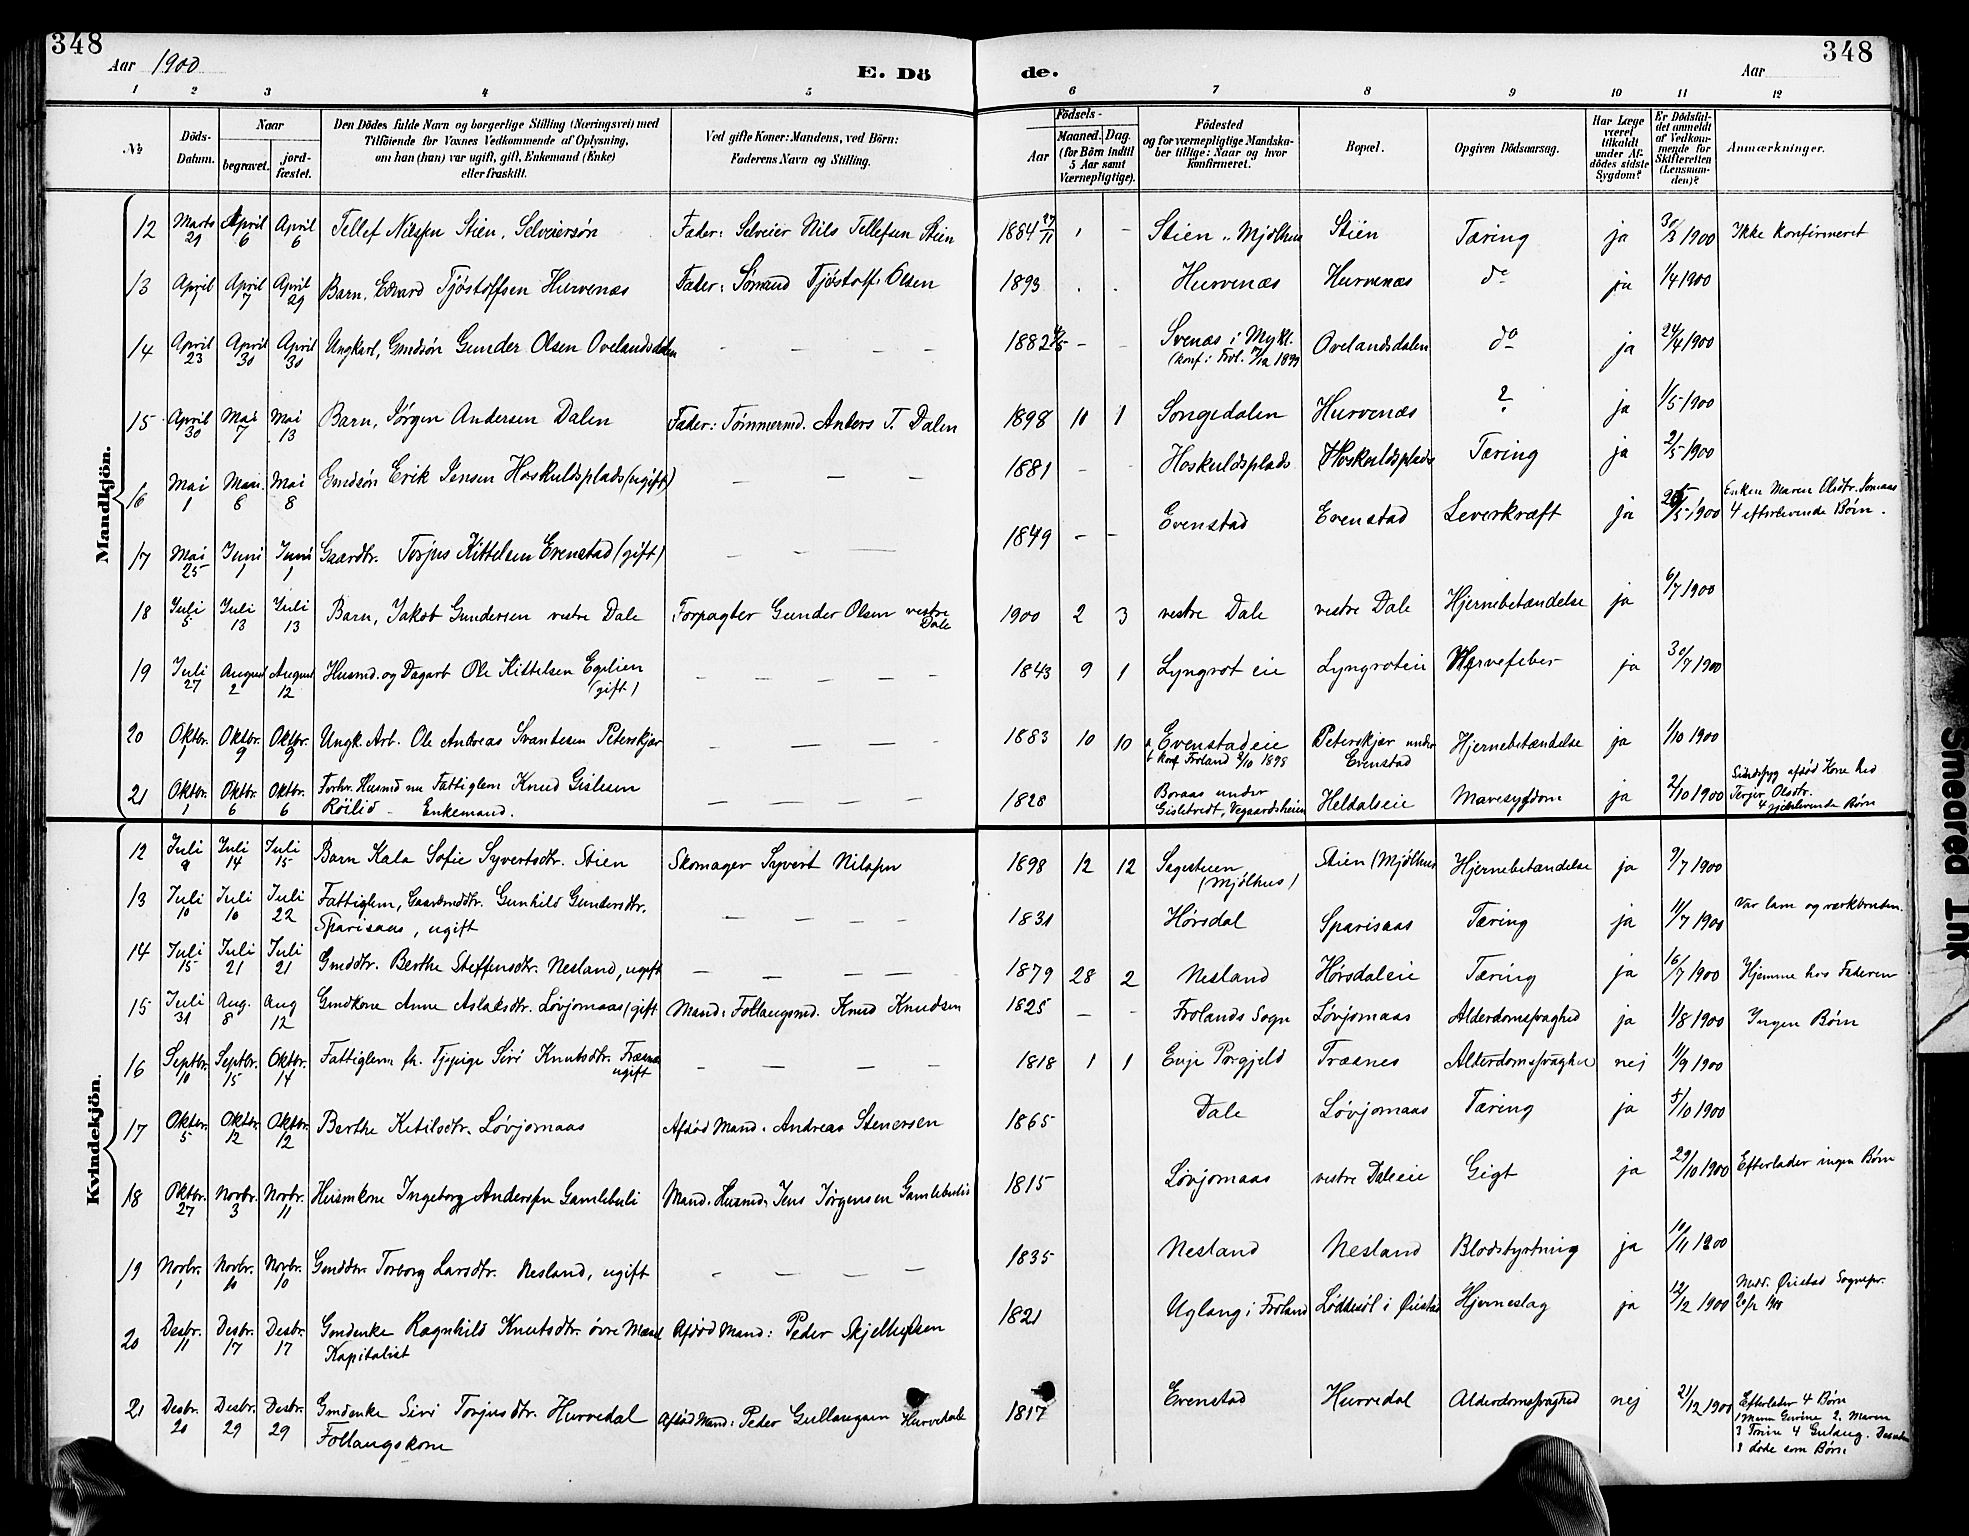 348
348
Aar 1900
E. Dö
de.
Aar
1 2 3 4 5 6 7 8 9 10 11 12
No
Döds-Datum.
Naar
begravet.
jord-fæstet.
Den Dödes fulde Navn og borgerlige Stilling (Næringsvei) med
Tilföiende for Voxnes Vedkommende af Oplysning,
om han (hun) var ugift, gift, Enkemand (Enke)
eller fraskilt.
Ved gifte Koner: Mandens, ved Börn:
Faderens Navn og Stilling.
Födsels-
Aar
Maaned. Dag.
(for Börn indtil
5 Aar samt
Værnepligtige).
Födested
og for værnepligtige Mandska-
ber tillige: Naar og hvor
konfirmeret.
Bopæl.
Opgiven Dödsaarsag.
Har Læge
været
tilkaldt
under Af-
dödes sidste
Sygdom?
Er Dödsfal-
det anmeldt
af Vedkom-
mende for
Skifteretten
(Lensman-
den)?
Anmærkninger.
Mandkjön.
12 Marts 29 April 6 April 6 Tellef Nilssen Stien, Selveiersøn Fader: Selveier Nils Tellefsen Stien 1884 27/11 Stien i Mjølhus Stien Tæring ja 30/3 1900 Ikke konfirmeret
13 April 1 April 7 April 29 Barn, Edvard Tjøstolfsen Hurvenæs Fader: Tjøstolf Olsen 1893 Hurvenæs Hurvenæs do ja 1/4 1900
14 April 23 April 30 April 30 Ungkarl, Gmdsøn Gunder Olsen Ovelandsdalen — — — — 1882 — — Svenæs i Mykl. Ovelandsdalen do ja 24/4 1900
15 April 30 Mai 7 Mai 13 Barn, Jørgen Andersen Dalen Fader: Tømmermd. Anders T. Dalen 1898 10 1 Songedalen Hurvenæs ? ja 1/5 1900
16 Mai 1 Mai 8 Mai 8 Gmdsøn Erik Jensen Hoskuldsplads (ugift) — — — 1881 — — Hoskuldsplads Hoskuldsplads Tæring ja 2/5 1900
17 Mai 25 Juni 1 Juni 1 Gaardbr. Torjus Kittelsen Evenstad (gift) — — — 1849 — — Evenstad Evenstad Leverkræft ja 26/5 1900 Enken Maren Olsdtr.
4 efterlevende Børn.
18 Juli 5 Juli 13 Juli 13 Barn, Jakob Gundersen vestre Dale Forpagter Gunder Olsen vestre Dale 1900 2 3 vestre Dale vestre Dale Hjernebetændelse ja 6/7 1900
19 Juli 27 August 2 August 12 Husmd. og Dagarb Ole Kittelsen Egelien (gift) — — — — 1843 9 1 Lyngrot eie Lyngroteie Nervefeber ja 30/7 1900
20 Oktbr. Oktbr. 9 Oktbr. 9 Ungk. Arb. Ole Andreas Svantesen Peterskjær — — — — 1883 10 10 Evenstadeie Konf Froland 2/10 1898 Peterskjær under Evenstad Hjernebetændelse ja 1/10 1900
21 Oktbr. 1 Oktbr. 6 Oktbr. 6 Forhv. Husmd nu Fattiglem Knud Gislesen
Røilid - Enkemand. — — — — 1828 Boraas under
Gisletvedt, Vegaardsheien Heldalseie Mavesygdom ja 2/10 1900 afdød Kone hed
Terjer Olsdtr.
4 Børn
Kvindekjön.
12 Juli 9 Juli 14 Juli 15 Barn Kala Sofie Syvertsdtr. Stien Skomager Syvert Nilssen 1898 12 12 Sagesteien (Mjølhus) Stien (Mjølhus Hjernebetændelse ja 9/7 1900
13 Juli 10 Juli 10 Juli 22 Fattiglem, Gaardmdtr. Gunhild Gundersdtr.
Sparisaas, ugift — — — — 1831 Hørsdal Sparisaas Tæring ja 11/7 1900 Var lam og værkbruden.
14 Juli 15 Juli 21 Juli 21 Gmddtr. Berthe Steffensdtr. Nesland, ugift — — — — 1879 28 2 Nesland Hørsdaleie Tæring ja 16/7 1900 Hjemme hos Faderen
15 Juli 31 Aug. 8 Aug 12 Gmdkone Anne Aslaksdtr. Løvjomaas (gift Mand: Follaugsmd. Knud Knudsen 1825 — — Frolands Sogn Løvjomaas Alderdomssvaghed ja 1/8 1900 Ingen Børn
16 Septbr. 10 Septbr. 15 Oktbr. 14 Fattiglem fh. Tjepige Siri Knutsdtr. Træsnes
ugift — — — — 1818 1 1 Evje Prgjeld Træsnes Alderdomssvaghed nej 11/9 1900
17 Oktbr. 5 Oktbr. 12 Oktbr. 12 Berthe Ketilsdtr. Løvjomaas Afdød Mand. Andreas Stenersen 1865 Dale Løvjomaas Tæring ja 5/10 1900
18 Oktbr. 27 Novbr. 3 Novbr. 11 Husmkone Ingeborg Anderssen Gamlebuli Mand. Husmd. Jens Jørgensen Gamlebuli 1815 Løvjomaas vestre Daleeie Gigt ja 29/10 1900 Efterlader ingen Børn
19 Novbr. 1 Novbr. 10 Novbr. 10 Gmddtr Torborg Larsdtr. Nesland, ugift — — — — 1835 Nesland Nesland Blodstyrtning ja 10/11 1900
20 Desbr. 11 Desbr. 17 Desbr. 17 Gmdenke Ragnhild Knutsdtr. øvre
Kapitalist Afdød Mand: Peder 1821 Uglang i Froland Løddesøl i Øiestad Hjerneslag ja 12/12 1900 Medd. Øiestad Sognepr.
21 Desbr. 20 Desbr. 29 Desbr. 29 Gmdenke Siri Torjusdtr. Hurvedal
Follaugskone Afdød Mand: Peder Gullaugsen Hurvedale 1817 Evenstad Hurvedal Alderdomssvaghed nej 21/12 1900 Efterlader 4 Børn
1 Maren 2. Maren
3 Tonine 4 Gulaug.
3 døde som Børn
Smeared Ink